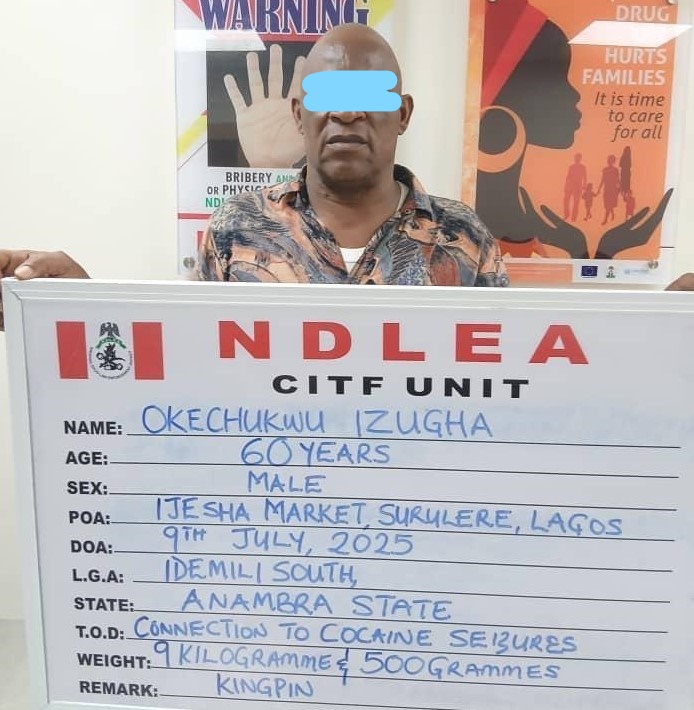 WARNING
BRIBERY AND
OR PHYSIC
DRUG
HURTS
FAMILIES
It is time
to care
for all
NDLEA
CITF UNIT
NAME: OKECHUKWU IZUGHA
AGE: 60 YEARS
SEX: MALE
POA: IJESHA MARKET, SURULERE, LAGOS
DOA: 9TH JULY, 2025
L.G.A: IDEMILI SOUTH,
STATE: ANAMBRA STATE
T.O.D: CONNECTION TO COCAINE SEIZURES
WEIGHT: 9 KILOGRAMME & 500GRAMMES
REMARK: KINGPIN